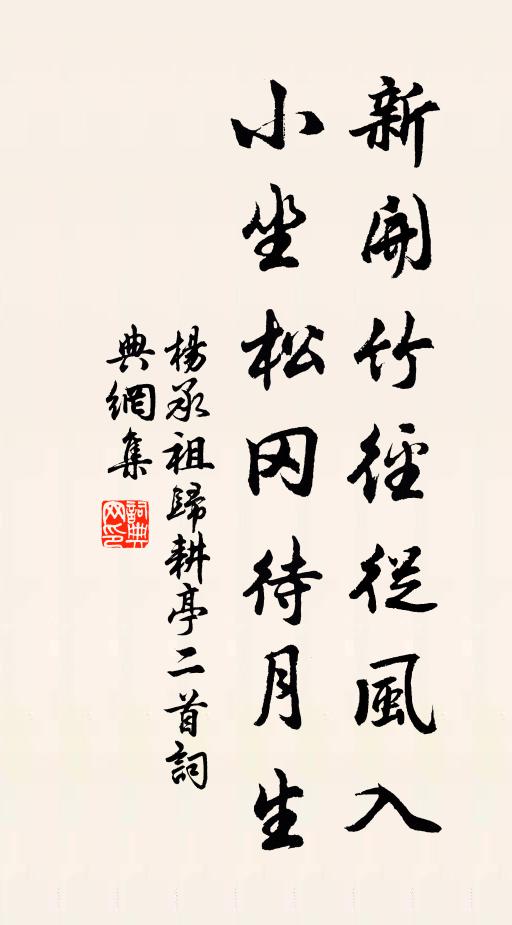 新開竹徑從風入
小坐松冈待月生
楊承祖歸耕亭二首詞
典網集
詞典
网印